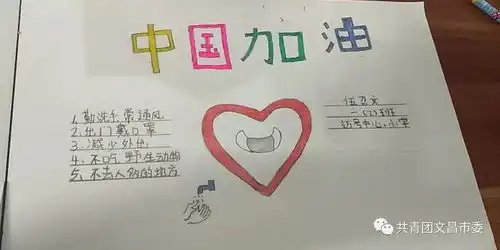 中国加油
1、勤洗手常通风
2、出门戴口罩
3、减少外出
4、不吃野生动物
5、不去人多的地方
一(7)班
中心小学
共青团文昌市委